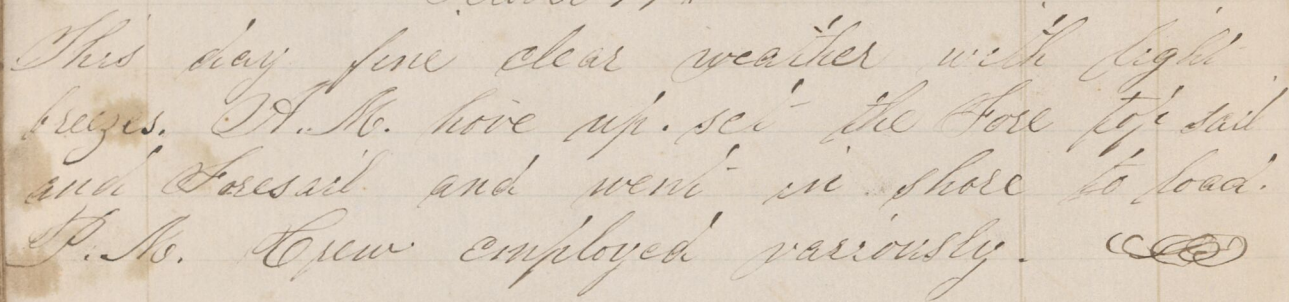 This day fine clear weather with light
breezes. A.M. hove up. set the Fore top sail
and Foresail and went in shore to load.
P.M. Crew employed variously.